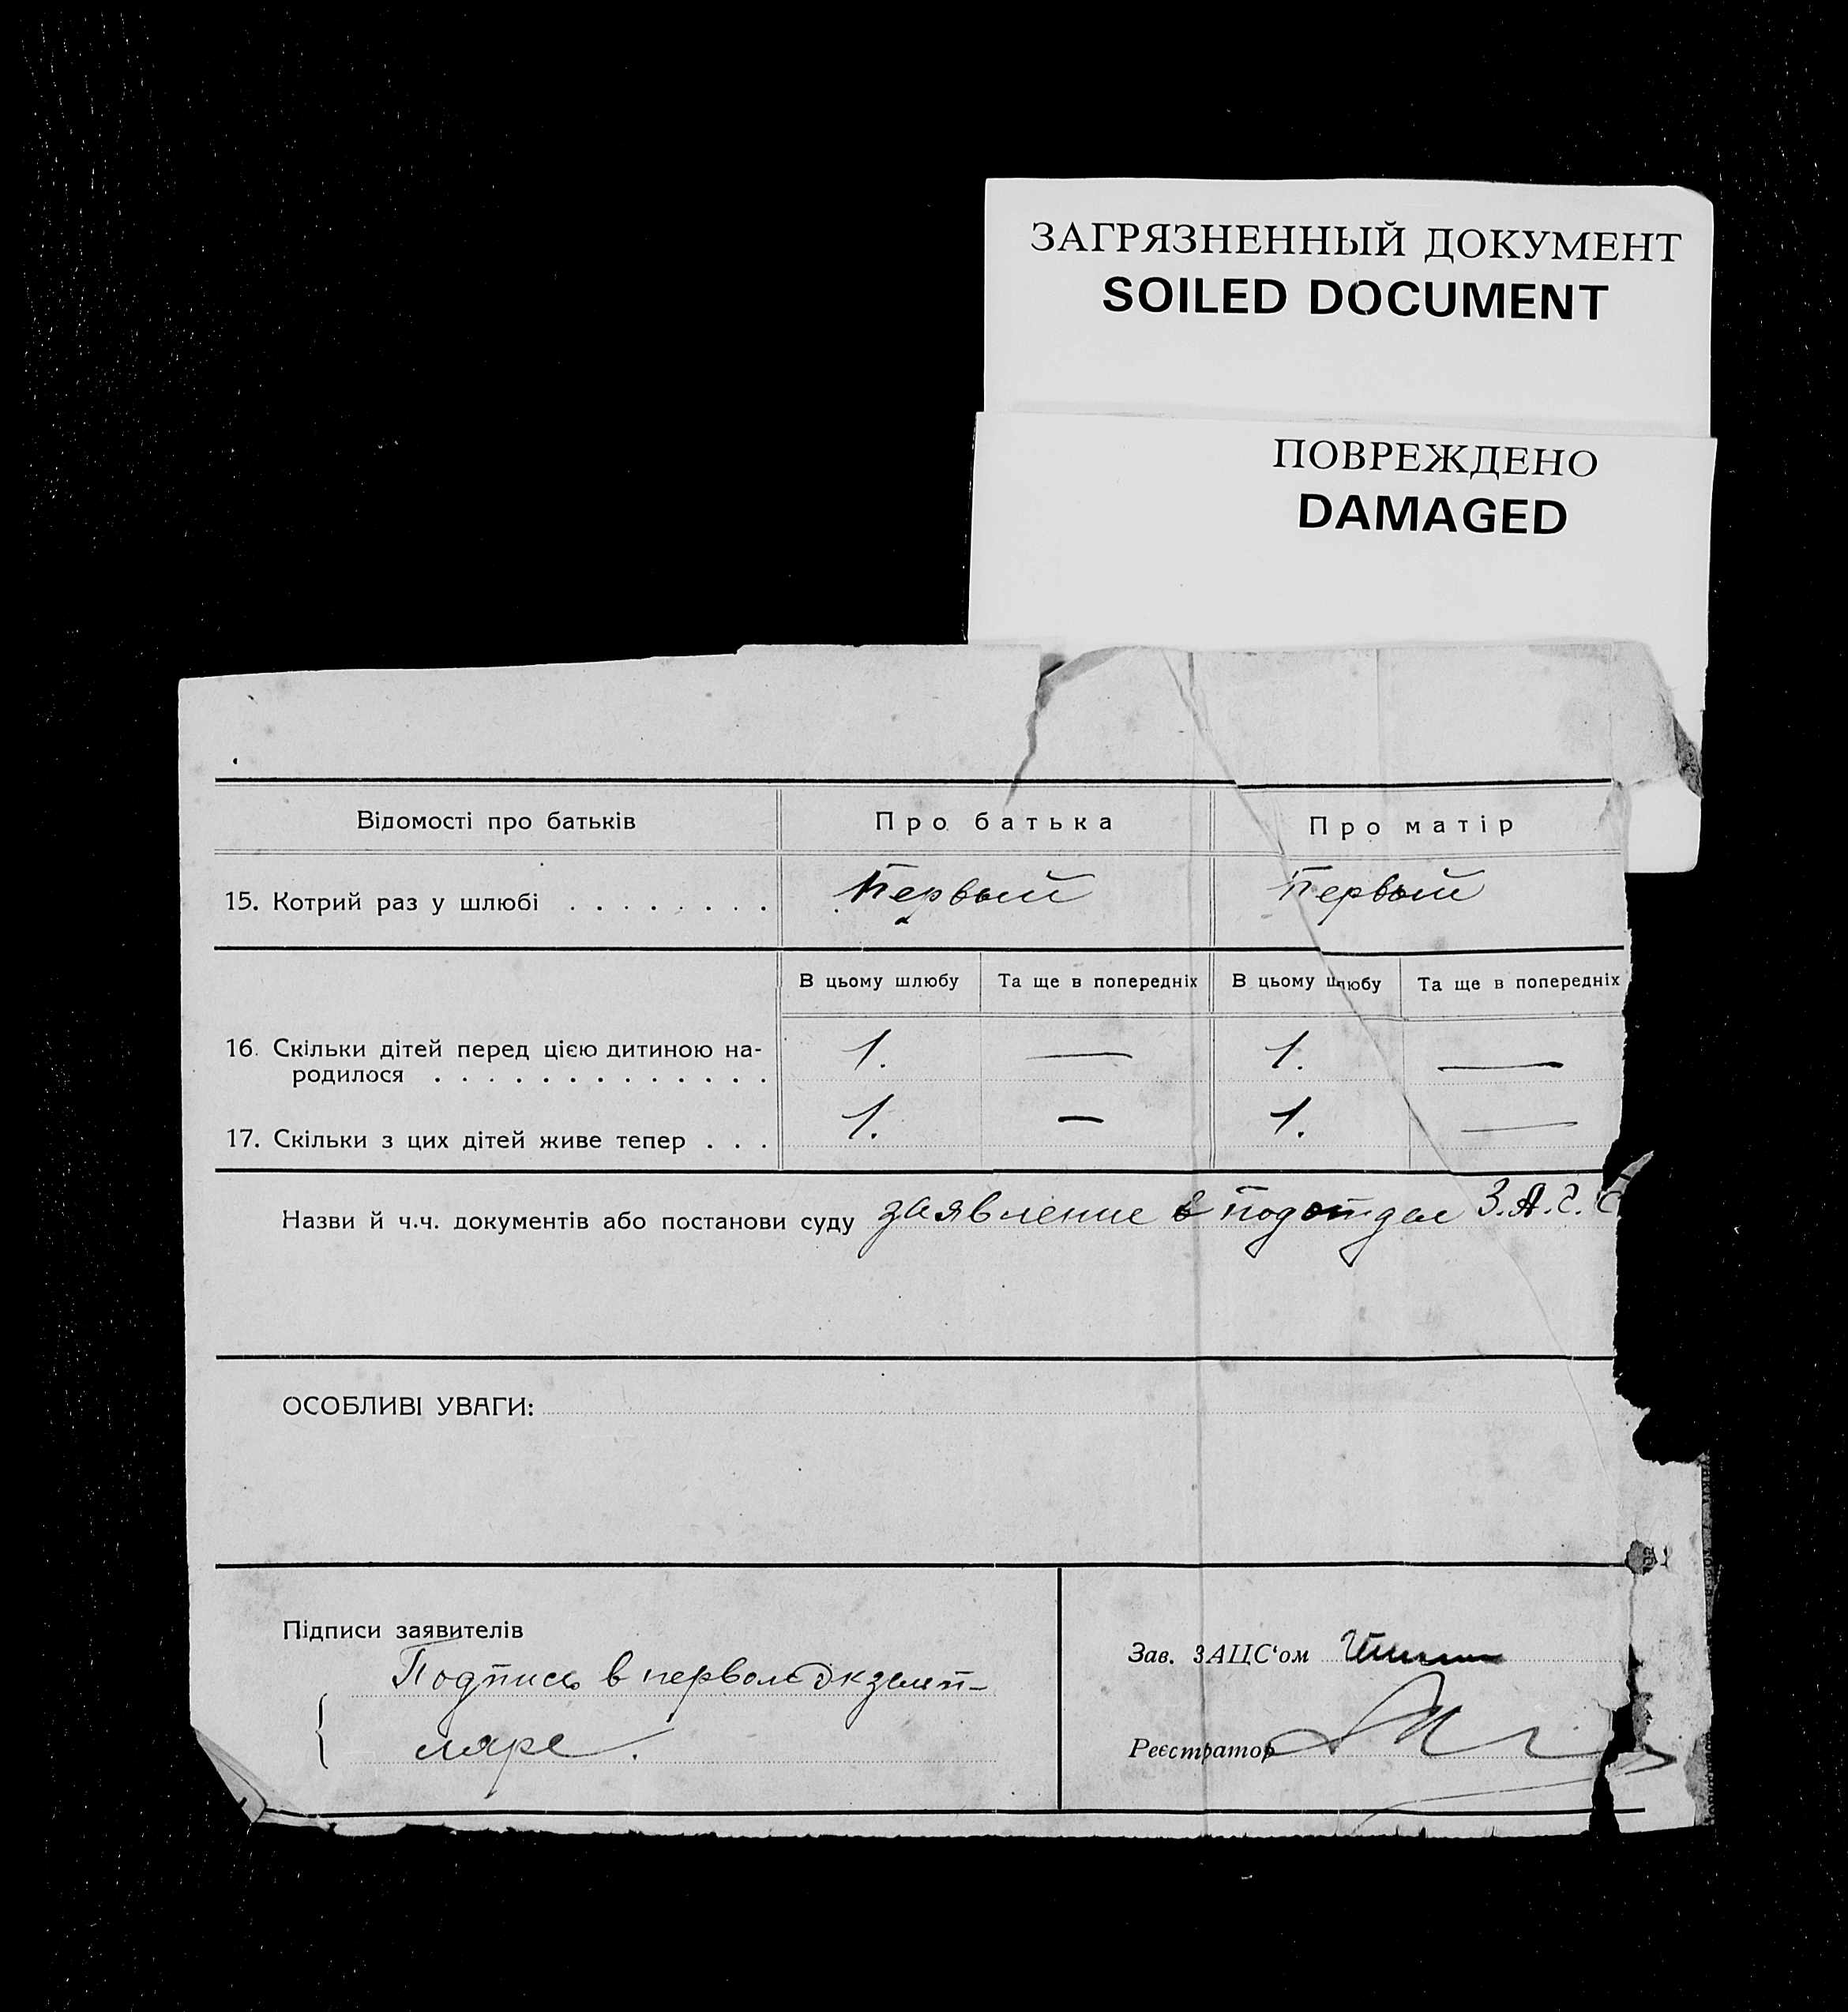 ЗАГРЯЗНЕННЫЙ ДОКУМЕНТ
SOILED DOCUMENT
ПОВРЕЖДЕНО
DAMAGED
Відомості про батьків Про батька Про матір
15. Котрий раз у шлюбі . . . . . . . . Первый Первый
В цьому шлюбу Та ще в попередніх В цьому шлюбу Та ще в попередніх
16. Скільки дітей перед цією дитиною на-
родилося . . . . . . . . . . . . . 1. — 1. —
17. Скільки з цих дітей живе тепер . . . 1. — 1. —
Назви й ч.ч. документів або постанови суду заявление в подотдел З.А.Г.С
ОСОБЛИВІ УВАГИ:
Підписи заявителів
Подпись в первом экземп-
ляре.
Зав. ЗАЦС‘ом
Реєстратор